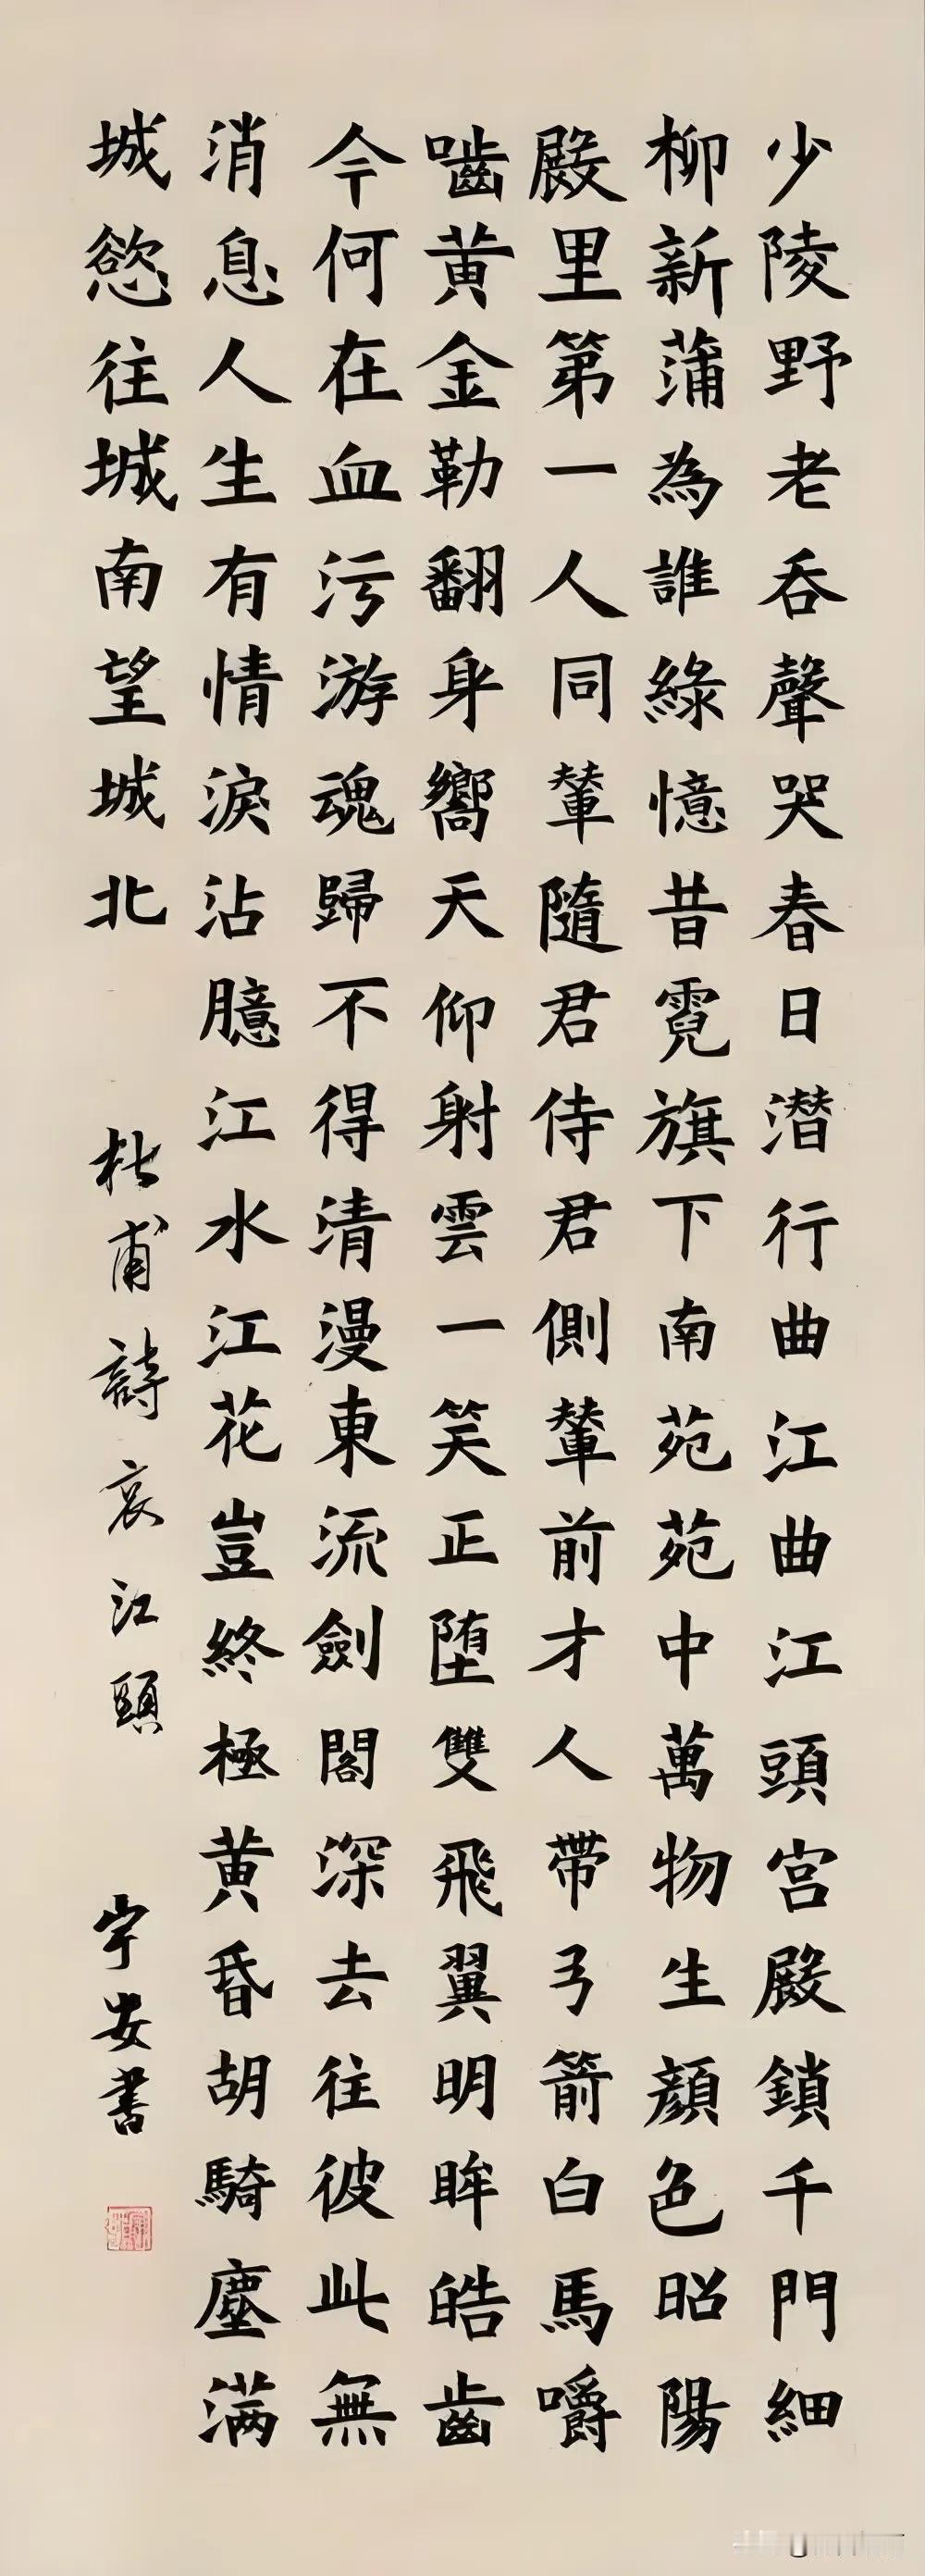 少陵野老吞聲哭春日潜行曲江曲江頭宫殿鎖千門細
柳新蒲為誰綠憶昔霓旗下南苑苑中萬物生顏色昭陽
殿里第一人同輦隨君侍君側輦前才人帶弓箭白馬嚼
噛黄金勒翻身嚮天仰射雲一笑正堕雙飛翼明眸皓齒
今何在血污游魂歸不得清漫東流劍閣深去往彼此無
消息人生有情淚沾臆江水江花豈終極黄昬胡騎塵满
城慾往城南望城北
杜甫詩哀江頭
宇安書